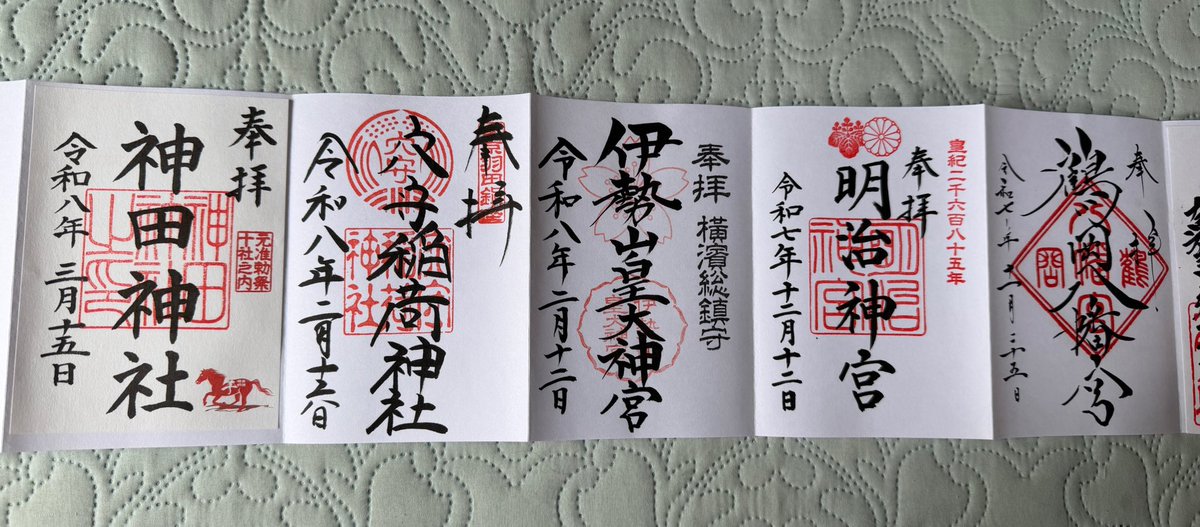 奉拝
鶴岡八幡宮
令和七年
皇紀二千六百八十五年
奉拝
明治神宮
令和七年十二月十二日
奉拝 横濱総鎮守
伊勢山皇大神宮
令和八年二月十二日
奉拝
穴守
穴守稲荷神社
令和八年二月
奉拝
元准勅祭
十社之内
神田神社
令和八年 三月十五日